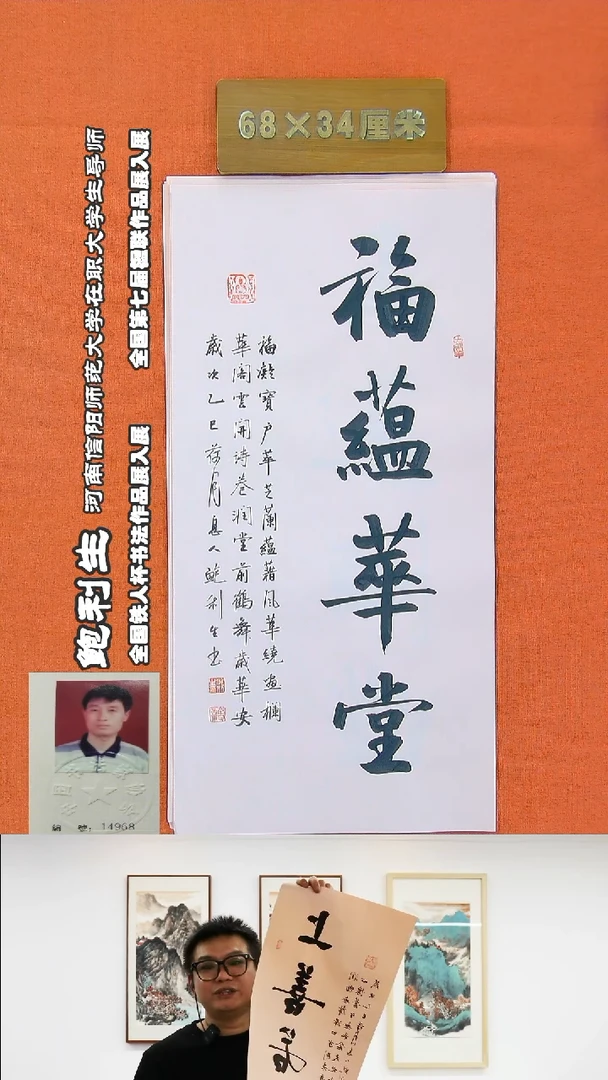 68×34厘米
福蕴華堂
福凝寶户華芝蘭蕴藉風華繞画欄
華阁雲開诗卷润堂前鶴舞歲華安
歲次乙巳荷月息人鲍利生书
鲍利生 河南信阳师范大学在职大学生导师
全国铁人杯书法作品展入展 全国第七届楹联作品展入展
编 号：14968
上善若